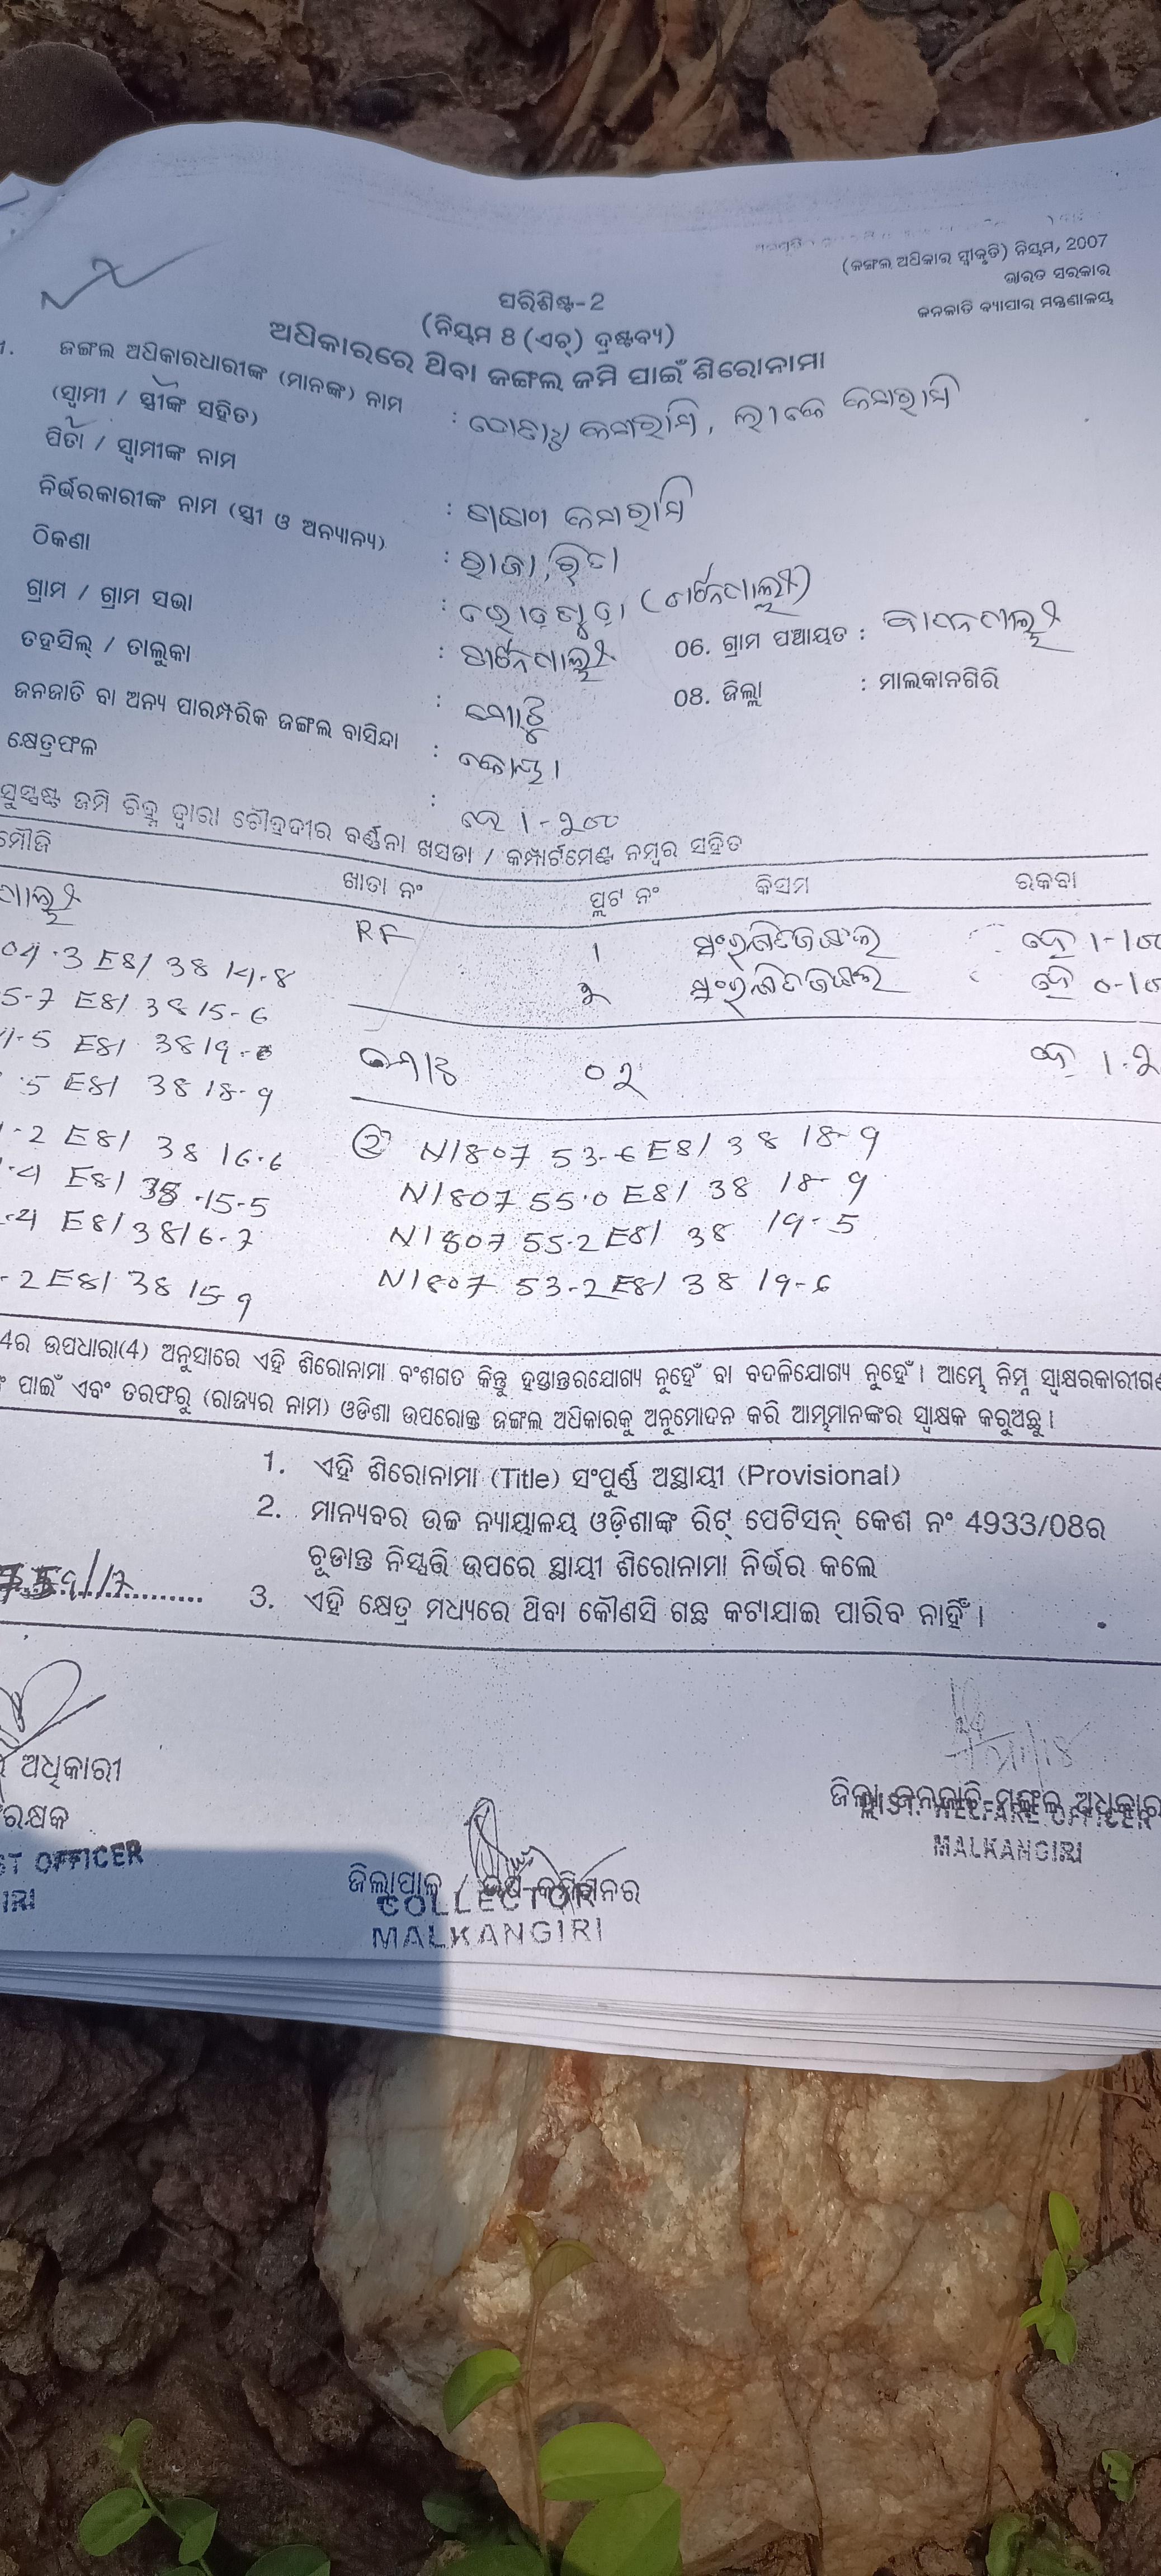 (ଜଙ୍ଗଲ ଅଧିକାର ସ୍ୱୀକୃତି) ନିୟମ, 2007
ଭାରତ ସରକାର
ଜନଜାତି ବ୍ୟାପାର ମନ୍ତ୍ରଣାଳୟ
ପରିଶିଷ୍ଟ-2
(ନିୟମ 8 (ଏଚ୍) ଦ୍ରଷ୍ଟବ୍ୟ)
ଅଧିକାରରେ ଥିବା ଜଙ୍ଗଲ ଜମି ପାଇଁ ଶିରୋନାମା
ଜଙ୍ଗଲ ଅଧିକାରଧାରୀଙ୍କ (ମାନଙ୍କ) ନାମ
(ସ୍ୱାମୀ / ସ୍ତ୍ରୀଙ୍କ ସହିତ) :
ପିତା / ସ୍ୱାମୀଙ୍କ ନାମ :
ନିର୍ଭରକାରୀଙ୍କ ନାମ (ସ୍ତ୍ରୀ ଓ ଅନ୍ୟାନ୍ୟ) : ରାଜା, ରିତା
ଠିକଣା :
ଗ୍ରାମ / ଗ୍ରାମ ସଭା : 06. ଗ୍ରାମ ପଞ୍ଚାୟତ :
ତହସିଲ୍ / ତାଲୁକା : 08. ଜିଲ୍ଲା : ମାଲକାନଗିରି
ଜନଜାତି ବା ଅନ୍ୟ ପାରମ୍ପରିକ ଜଙ୍ଗଲ ବାସିନ୍ଦା : କୋୟା
କ୍ଷେତ୍ରଫଳ : ହେ 1-୨୦୦
ସୁସ୍ପଷ୍ଟ ଜମି ଚିହ୍ନ ଦ୍ୱାରା ଚୌହଦୀର ବର୍ଣ୍ଣନା ଖସଡା / କମ୍ପାର୍ଟମେଣ୍ଟ ନମ୍ବର ସହିତ
ମୌଜି ଖାତା ନଂ ପ୍ଲଟ ନଂ କିସମ ରକବା
RF 1 ସଂରକ୍ଷିତ ଜଙ୍ଗଲ ହେ 1-100
04.3 E81 38 14.8 ୨ ସଂରକ୍ଷିତ ଜଙ୍ଗଲ ହେ 0-10
5-7 E81 38 15-6
1-5 E81 38 19-
ମୋଟ 0୨ ହେ 1.୨
.5 E81 38 18-9
-2 E81 38 16.6 ② N1807 53-6 E81 38 18-9
.4 E81 38 .15-5 N1807 55.0 E81 38 18-9
.4 E81 38 16-7 N1807 55.2 E81 38 19-5
-2 E81 38 15-9 N1807 53-2 E81 38 19-6
4ର ଉପଧାରା(4) ଅନୁସାରେ ଏହି ଶିରୋନାମା ବଂଶଗତ କିନ୍ତୁ ହସ୍ତାନ୍ତରଯୋଗ୍ୟ ନୁହେଁ ବା ବଦଳିଯୋଗ୍ୟ ନୁହେଁ । ଆମ୍ଭେ ନିମ୍ନ ସ୍ୱାକ୍ଷରକାରୀଗଣ
ପାଇଁ ଏବଂ ତରଫରୁ (ରାଜ୍ୟର ନାମ) ଓଡିଶା ଉପରୋକ୍ତ ଜଙ୍ଗଲ ଅଧିକାରକୁ ଅନୁମୋଦନ କରି ଆମ୍ଭମାନଙ୍କର ସ୍ୱାକ୍ଷକ କରୁଅଛୁ ।
1. ଏହି ଶିରୋନାମା (Title) ସଂପୁର୍ଣ୍ଣ ଅସ୍ଥାୟୀ (Provisional)
2. ମାନ୍ୟବର ଉଚ୍ଚ ନ୍ୟାୟାଳୟ ଓଡ଼ିଶାଙ୍କ ରିଟ୍ ପେଟିସନ୍ କେଶ ନଂ 4933/08ର
ଚୂଡାନ୍ତ ନିସ୍ପତ୍ତି ଉପରେ ସ୍ଥାୟୀ ଶିରୋନାମା ନିର୍ଭର କଲେ
3. ଏହି କ୍ଷେତ୍ର ମଧ୍ୟରେ ଥିବା କୌଣସି ଗଛ କଟାଯାଇ ପାରିବ ନାହିଁ ।
ଅଧିକାରୀ
ରକ୍ଷକ
ST OFFICER
IRI
ଜିଲ୍ଲାପାଳ / କମିଶନର
COLLECTOR
MALKANGIRI
ଜିଲ୍ଲା ଜନଜାତି ମଙ୍ଗଳ ଅଧିକାର
DIST. WELFARE OFFICER
MALKANGIRI